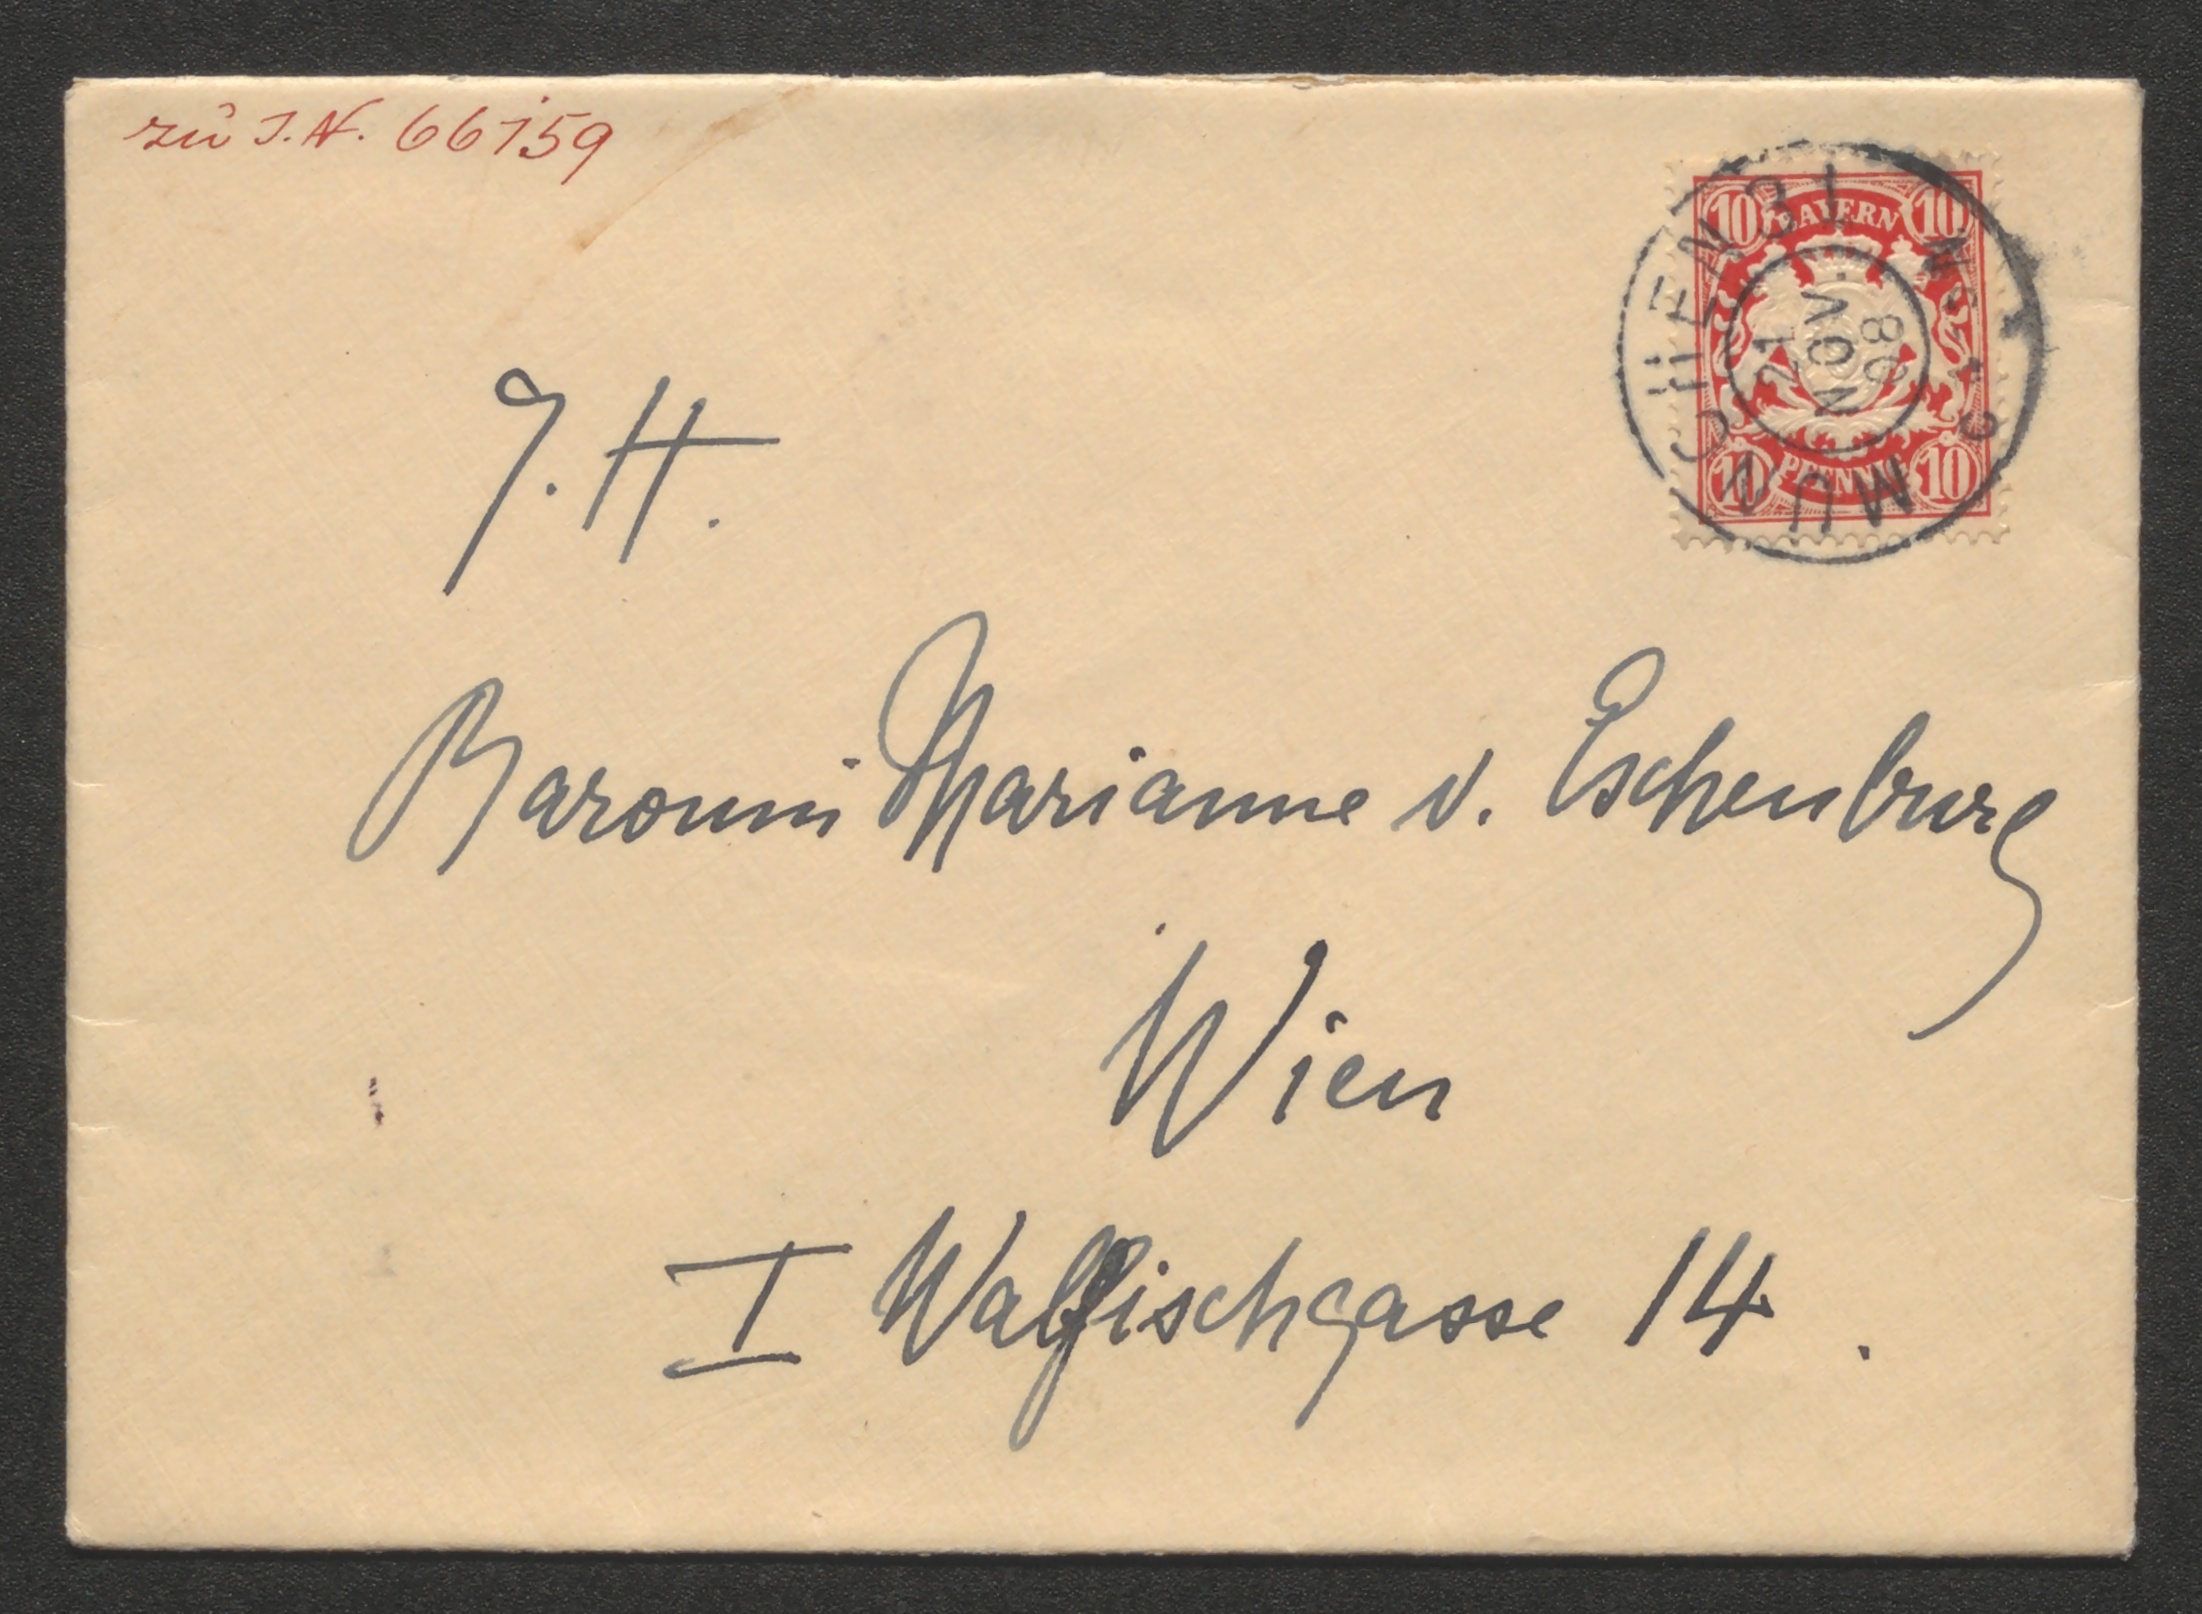 zu I.N. 66159
10 BAYERN 10
MÜNCHEN 31
21
NOV.
08
10 PFENNIG 10
J. H.
Baronin Marianne v. Eschenburg
Wien
I Walfischgasse 14.